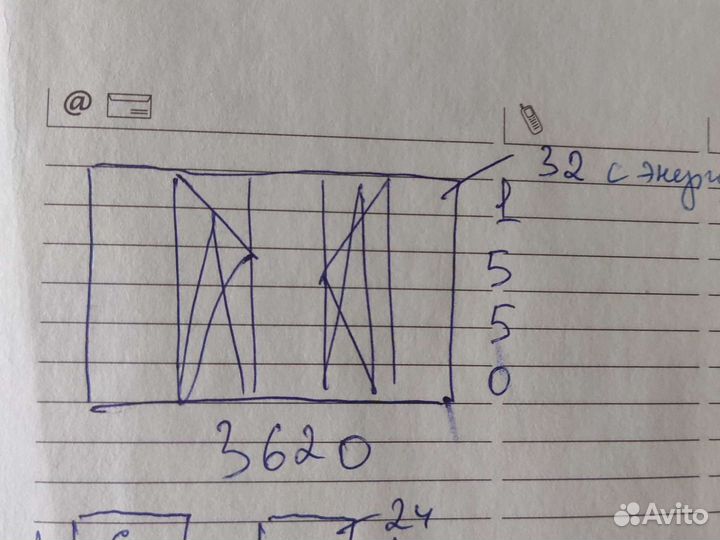 @
32 с энерг
1
5
5
0
3620
24
Avito